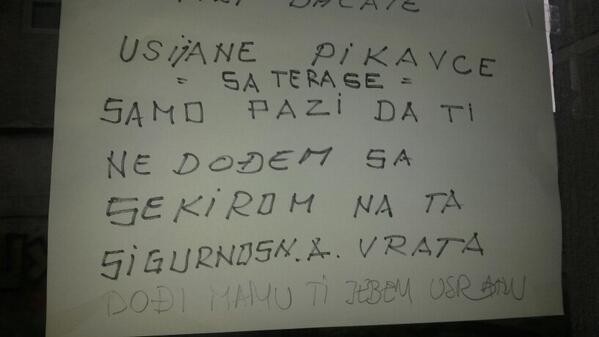 BACATE
USIJANE PIKAVCE
= SA TERASE =
SAMO PAZI DA TI
NE DOĐEM SA
SEKIROM NA TA
SIGURNOSN.A. VRATA
DOĐI MAMU TI JEBEM